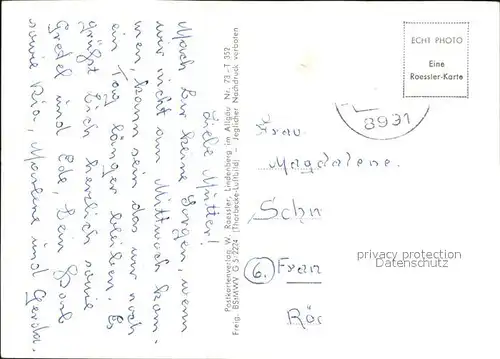 Liebe Mutter!
Mach Dir keine Sorgen, wenn
wir nicht am Mittwoch kom-
men, kann sein das wir noch
ein Tag länger bleiben. Es
grüßt Dich herzlich sowie
Gretel und Ede, Dein
sowie Ria, Marlene und Gerda.
Postkartenverlag W. Roessler, Lindenberg im Allgäu Nr. 73 - T 352
Freig. BStMWV G 5/2274 (Thorbecke-Luftbild) - Jeglicher Nachdruck verboten
ECHT PHOTO
Eine
Roessler-Karte
8931
Frau
Magdalene
Schn
6. Fran
privacy protection
Datenschutz